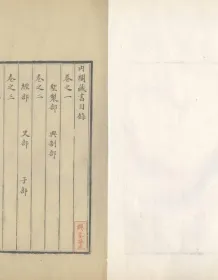 內閣藏書目錄
卷之一
聖製部 典制部
卷之二
經部 史部 子部
卷之三